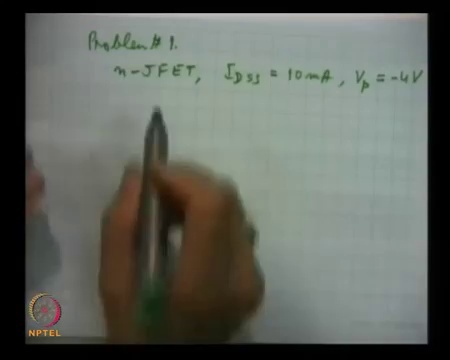 Problem # 1.
n-JFET, IDSS = 10mA, Vp = -4V
NPTEL